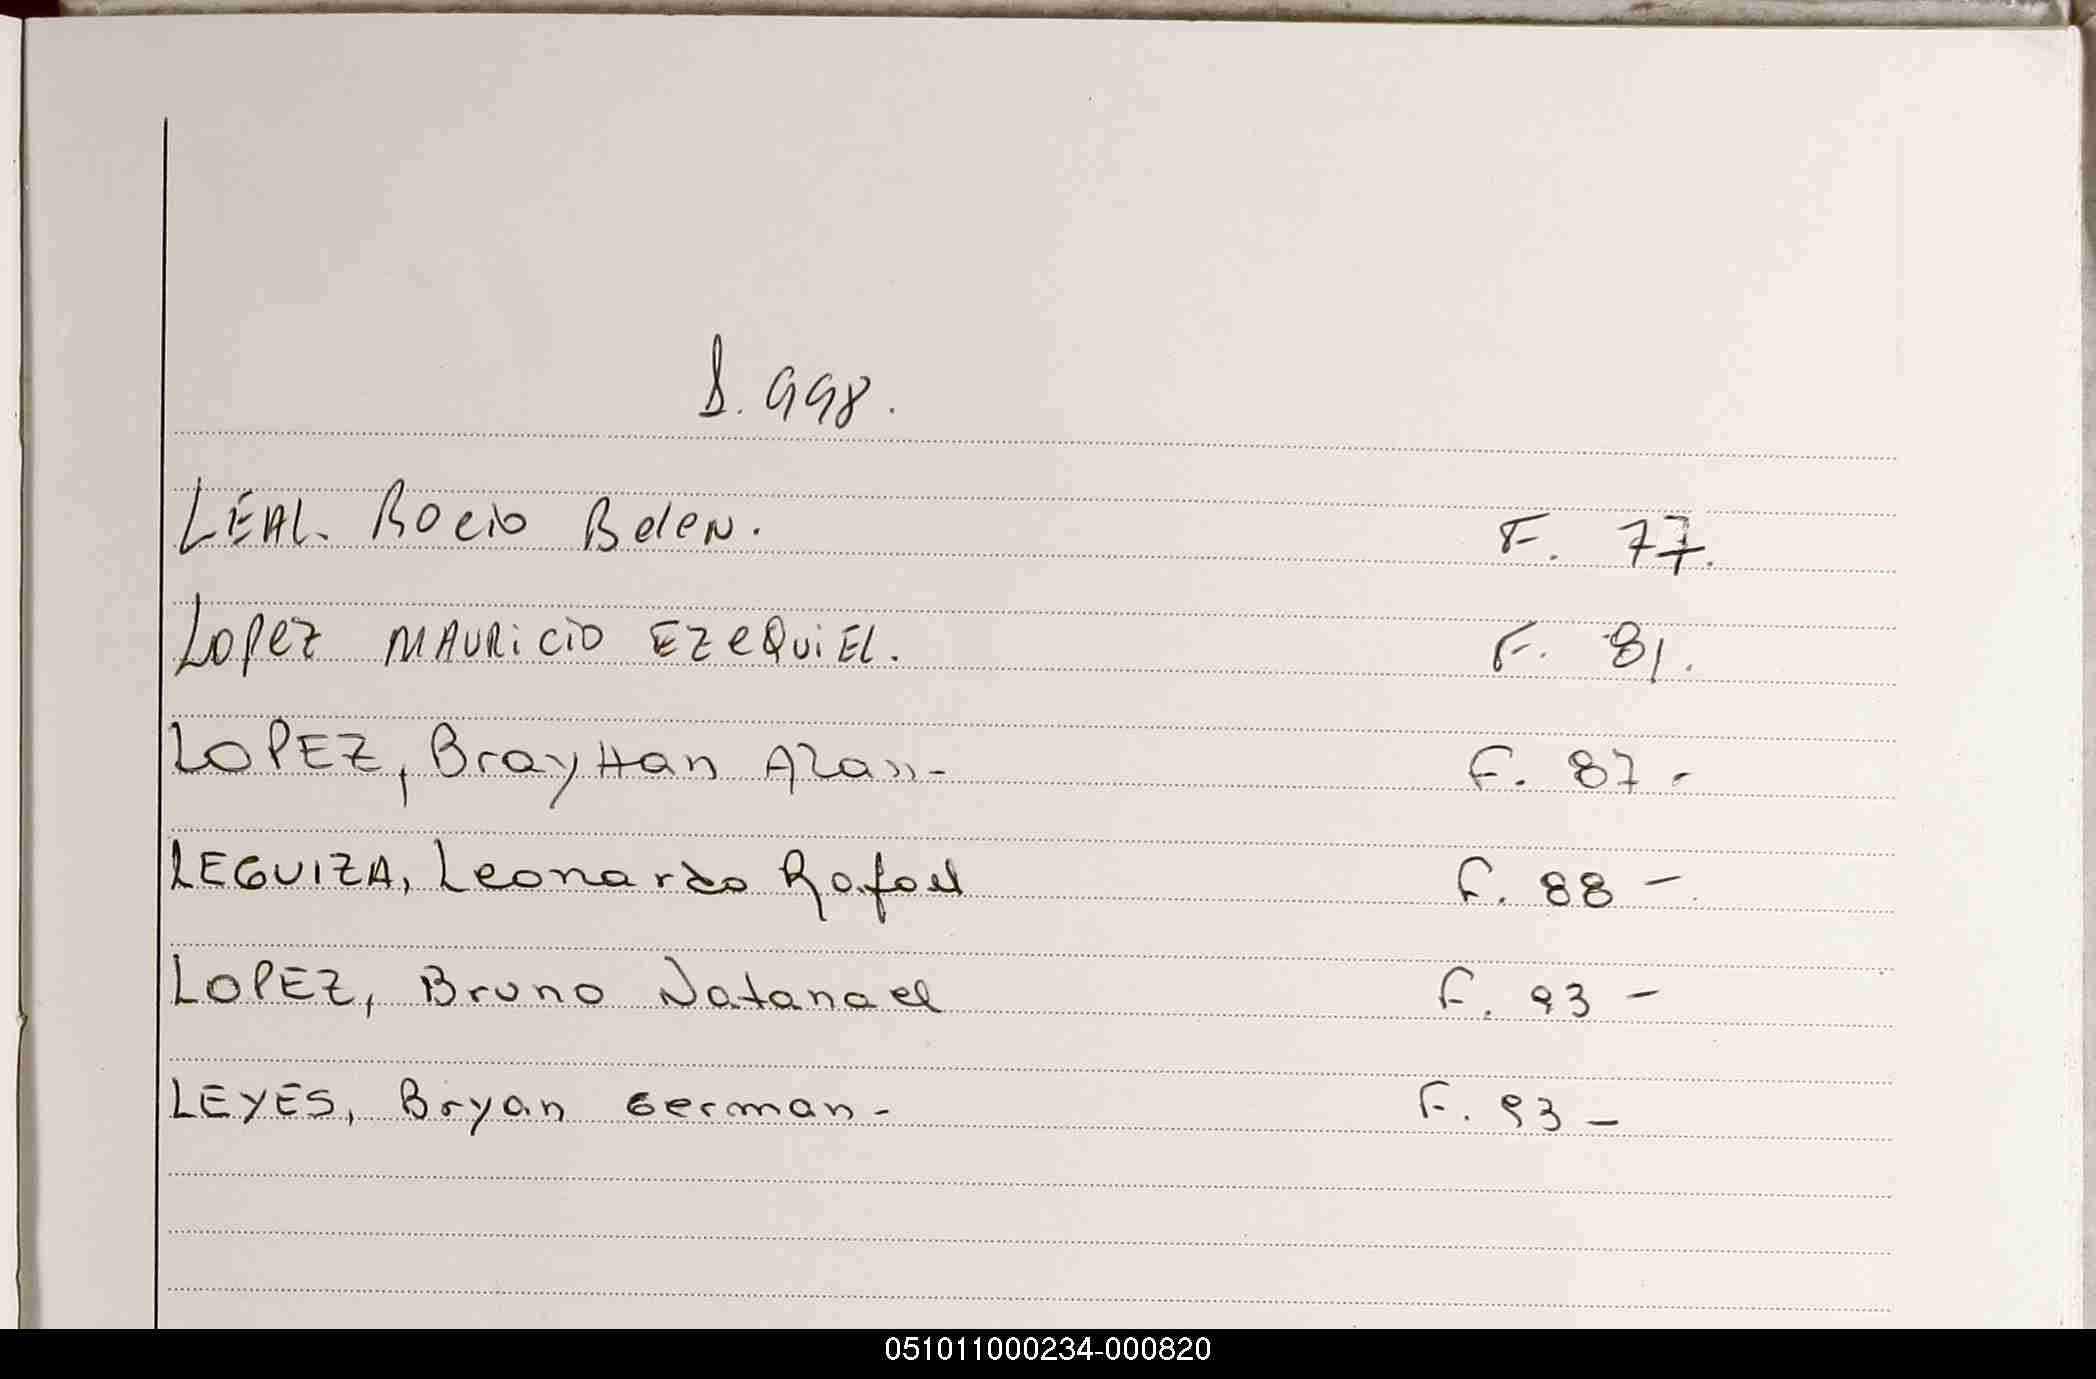 1.998.
LEAL. Rocio Belen. F. 77.
Lopez MAURiciO EZeQuiEL. F. 81.
LOPEZ, BrayHan Alan- F. 87-
LEGUIZA, Leonardo Rafael F. 88-
LOPEZ, Bruno Natanael F. 93-
LEYES, Bryan German- F. 93-
051011000234-000820